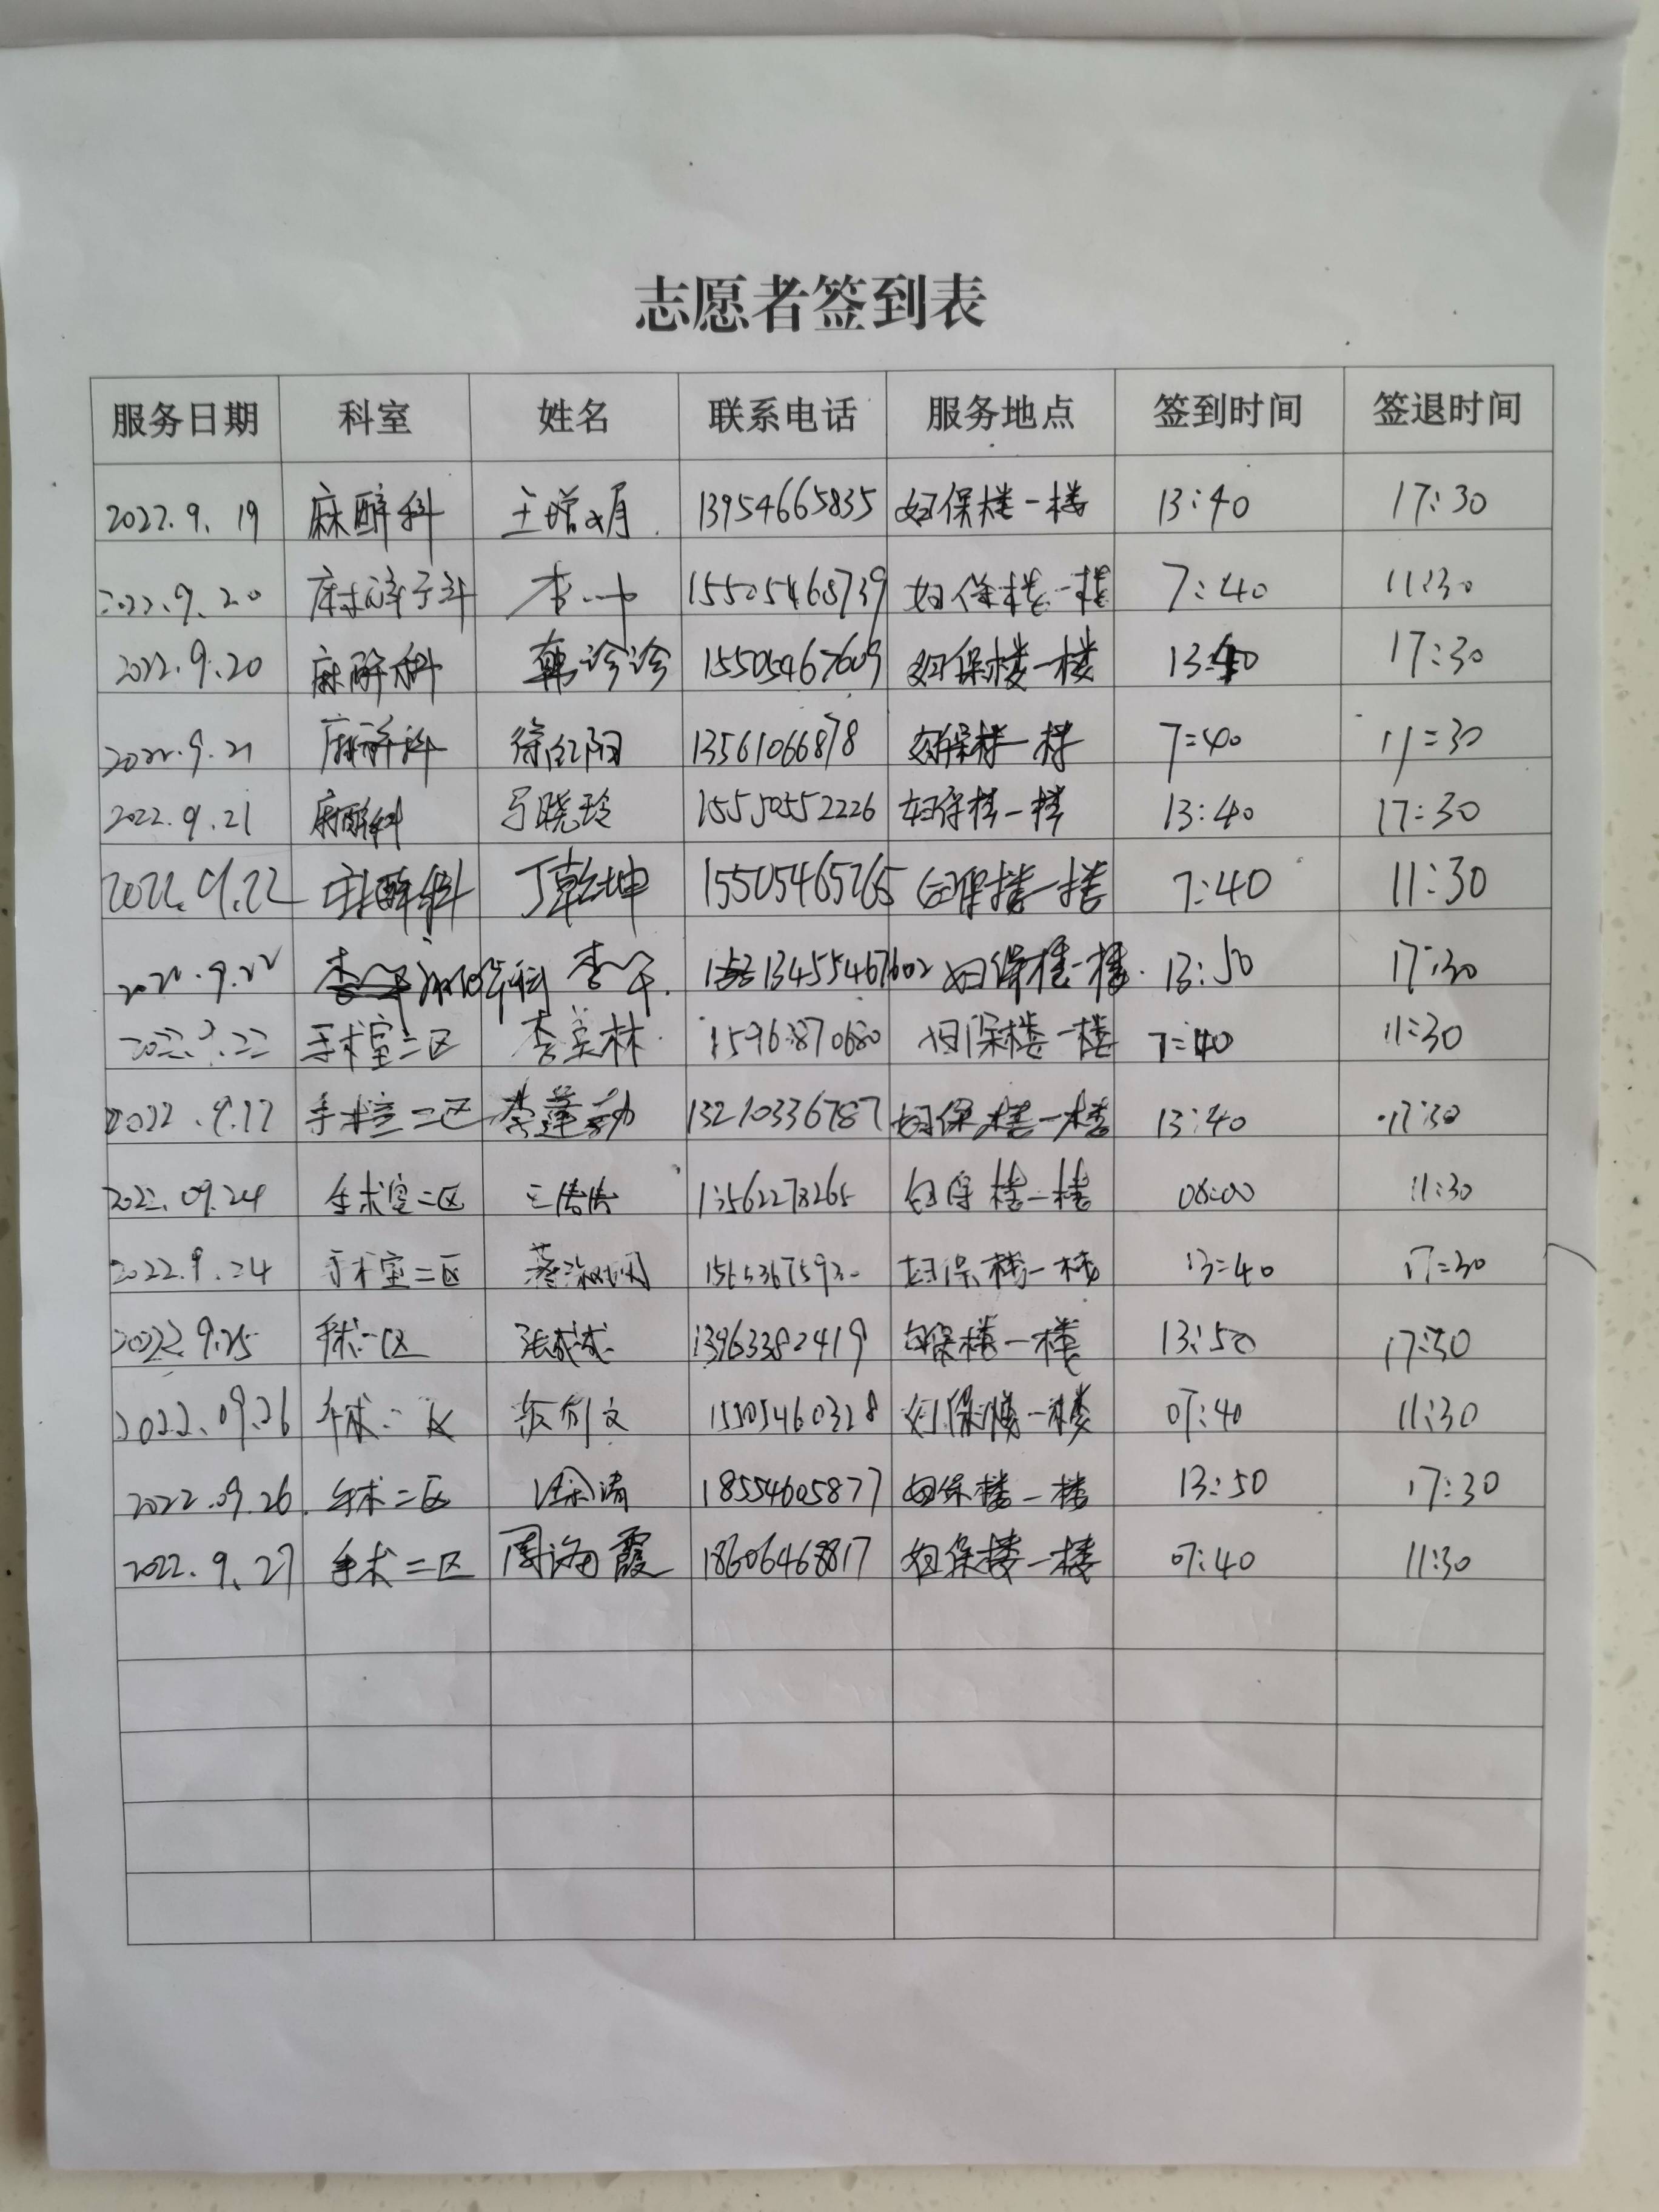 志愿者签到表
服务日期 科室 姓名 联系电话 服务地点 签到时间 签退时间
2022.9.19 麻醉科 王增娟 13954665835 妇保楼一楼 13:40 17:30
2022.9.20 麻醉科 李 15505468739 妇保楼一楼 7:40 11:30
2022.9.20 麻醉科 韩诊诊 15505467609 妇保楼一楼 13:40 17:30
2022.9.21 麻醉科 徐红阳 13561066878 妇保楼一楼 7:40 11:30
2022.9.21 麻醉科 马晓玲 15550552226 妇保楼一楼 13:40 17:30
2022.9.22 麻醉科 丁乾坤 15505465265 妇保楼一楼 7:40 11:30
2022.9.22 麻醉科 李 13455467602 妇保楼一楼 13:50 17:30
2022.9.22 手术室二区 李美林 15963870680 妇保楼一楼 7:40 11:30
2022.9.22 手术室二区 李莲勤 13210336787 妇保楼一楼 13:40 17:30
2022.09.24 手术室二区 王倩倩 13562278265 妇保楼一楼 08:00 11:30
2022.9.24 手术室二区 妇保楼一楼 13:40 17:30
2022.9.25 手术二区 张成成 13963382419 妇保楼一楼 13:50 17:30
2022.09.26 手术二区 15505460328 妇保楼一楼 07:40 11:30
2022.09.26 手术二区 18554605877 妇保楼一楼 13:50 17:30
2022.9.27 手术二区 周海霞 18606468817 妇保楼一楼 07:40 11:30